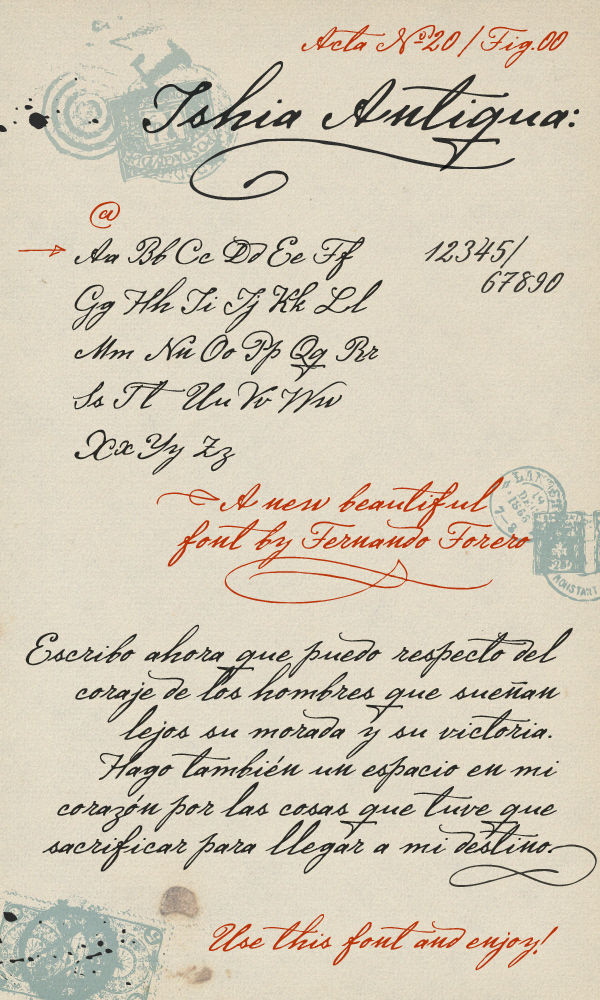 Acta Nº20 / Fig.00
Ishia Antiqua:
@
Aa Bb Cc Dd Ee Ff
12345/
67890
Gg Hh Ii Jj Kk Ll
Mm Nn Oo Pp Qq Rr
Ss Tt Uu Vv Ww
Xx Yy Zz
A new beautiful
font by Fernando Forero
Escribo ahora que puedo respecto del
coraje de los hombres que sueñan
lejos su morada y su victoria.
Hago también un espacio en mi
corazón por las cosas que tuve que
sacrificar para llegar a mi destino.
Use this font and enjoy!